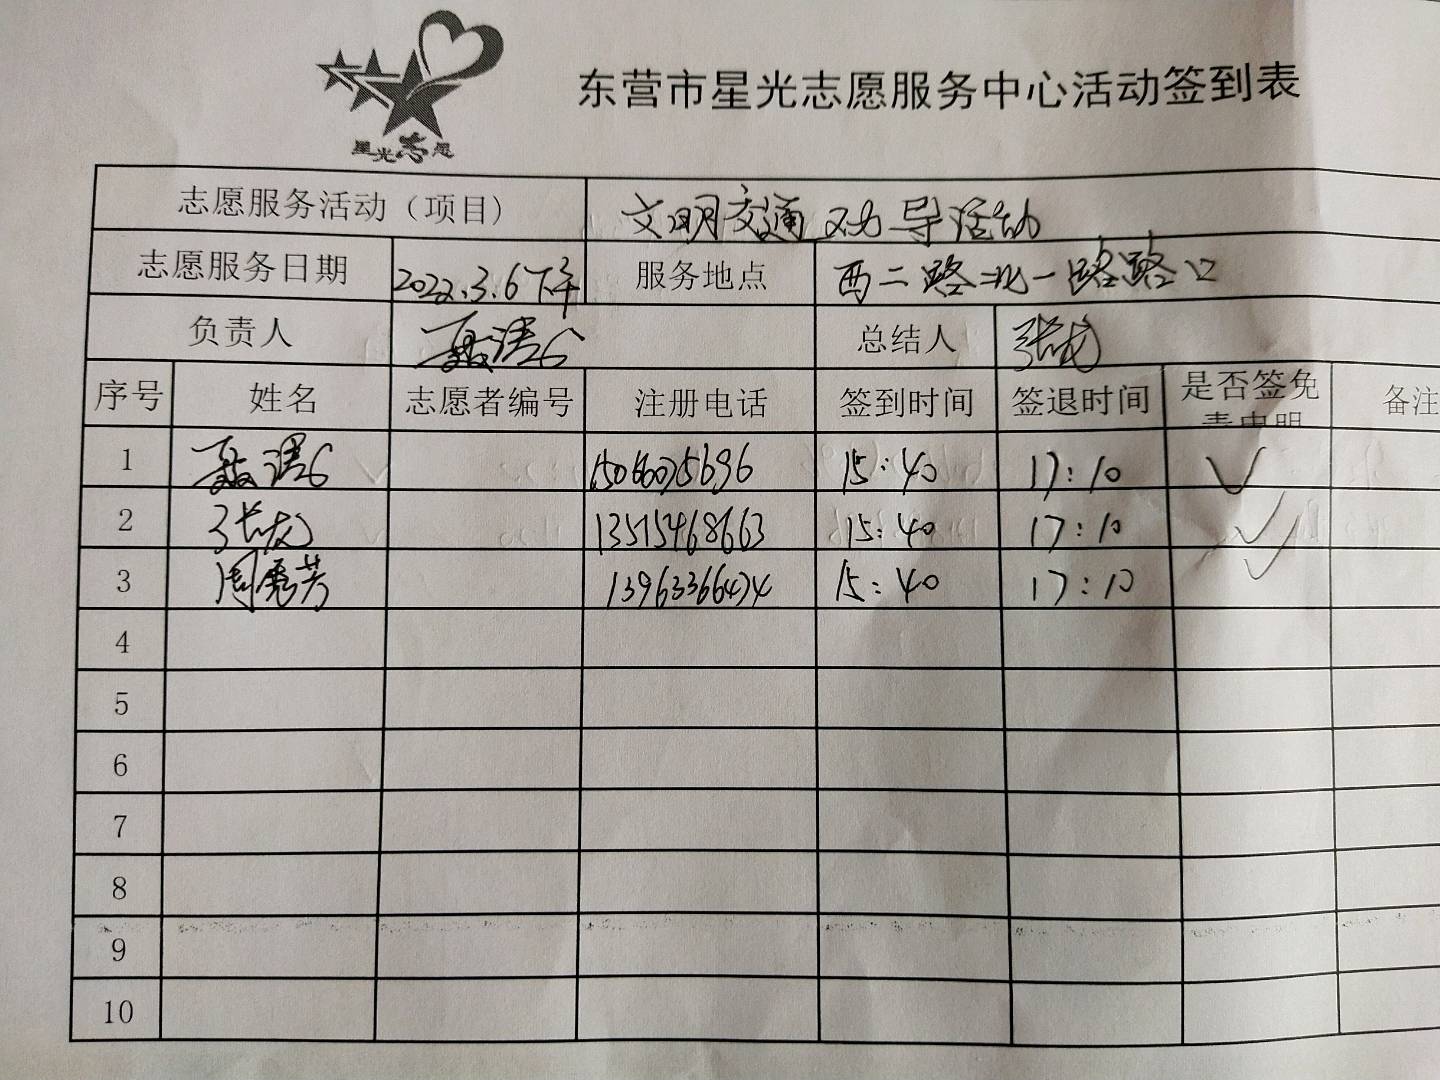 星光志愿
东营市星光志愿服务中心活动签到表
志愿服务活动（项目） 文明交通劝导活动
志愿服务日期 2022.3.6下午 服务地点 西二路北一路路口
负责人 总结人 张龙
序号 姓名 志愿者编号 注册电话 签到时间 签退时间 是否签免责申明 备注
1 15:40 17:10 ✓
2 张龙 13515468663 15:40 17:10 ✓
3 周秀芳 13963366474 15:40 17:10 ✓
4
5
6
7
8
9
10